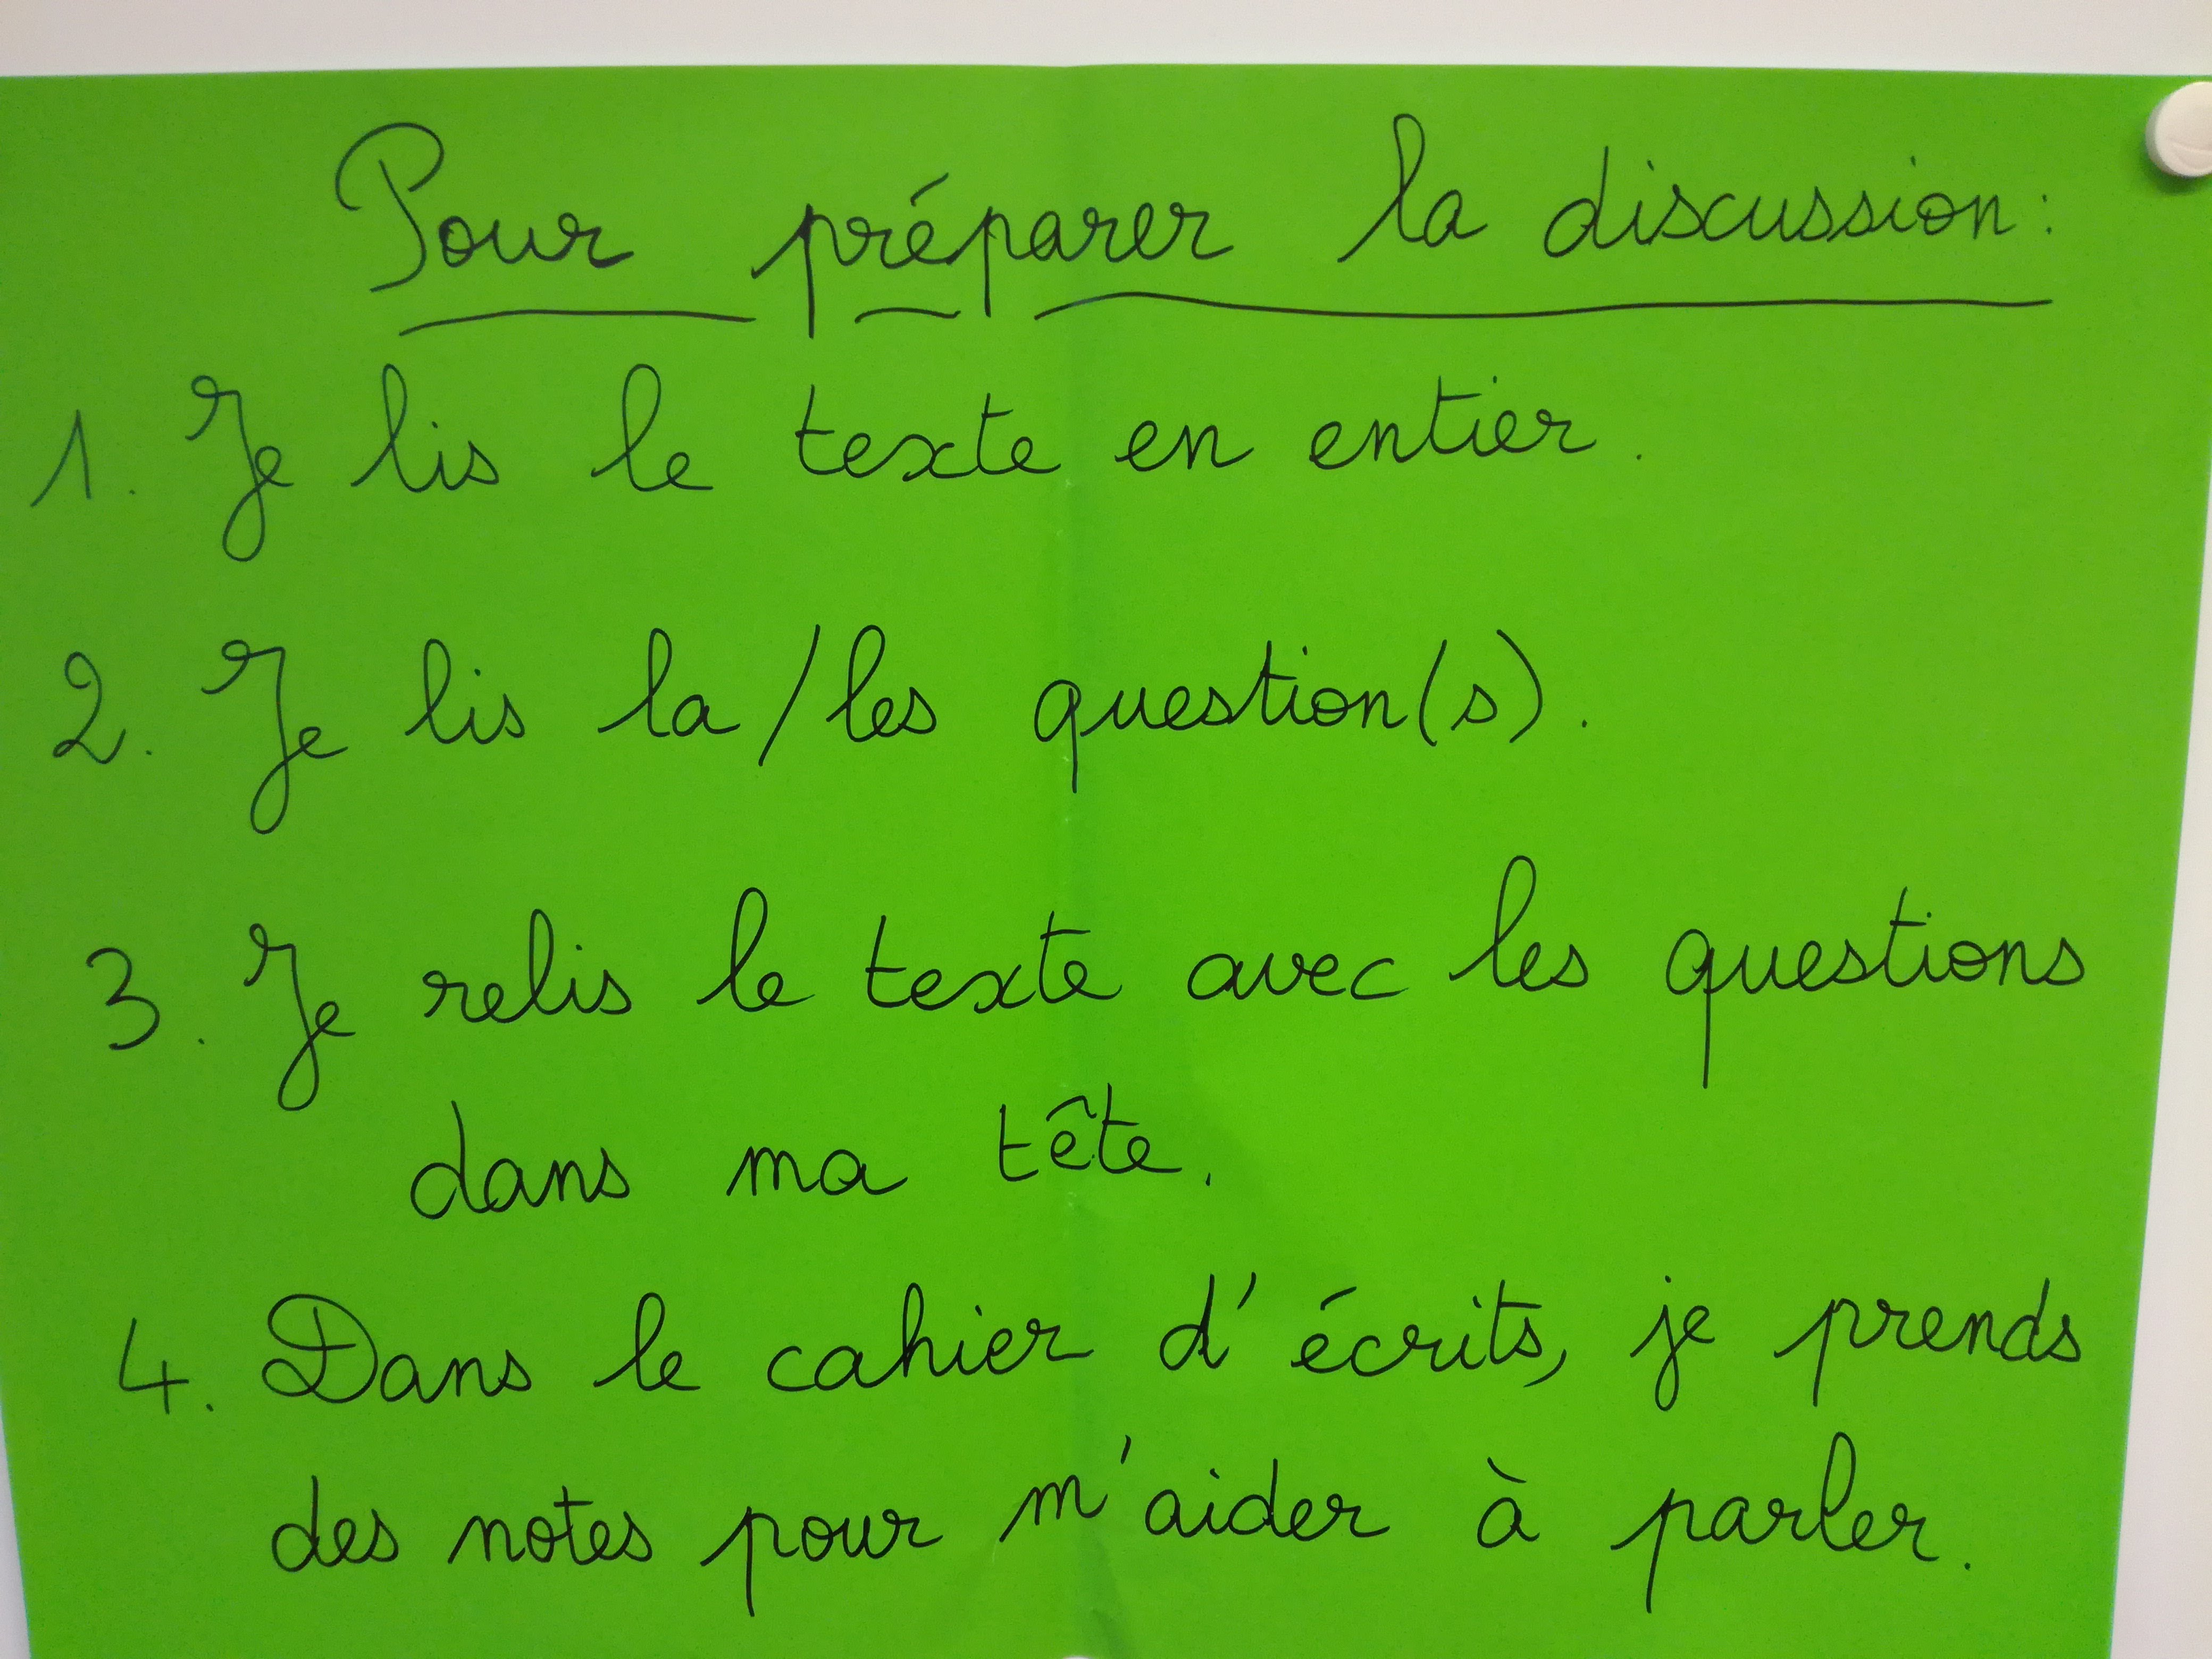 Pour préparer la discussion:
1. Je lis le texte en entier.
2. Je lis la/les question(s).
3. Je relis le texte avec les questions
dans ma tête.
4. Dans le cahier d'écrits, je prends
des notes pour m'aider à parler.